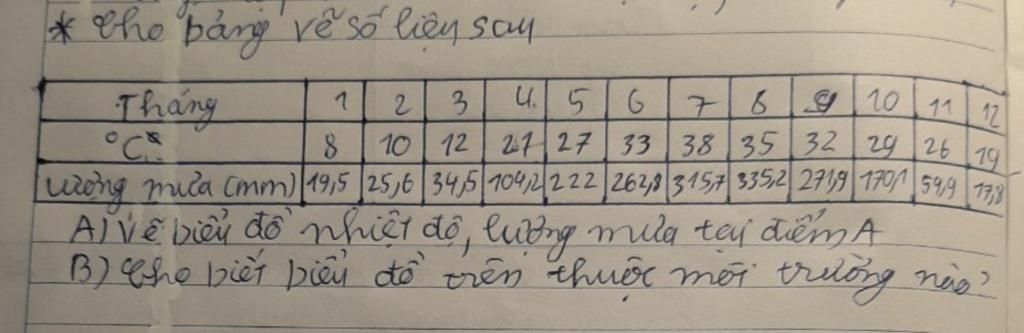 * Cho bảng về số liệu sau
Tháng 1 2 3 4 5 6 7 8 9 10 11 12
°C 8 10 12 21 27 33 38 35 32 29 26 19
Lượng mưa (mm) 19,5 25,6 34,5 104,2 222 262,8 315,7 335,2 271,9 170,1 59,9 17,8
A) Vẽ biểu đồ nhiệt độ, lượng mưa tại điểm A
B) Cho biết biểu đồ trên thuộc môi trường nào?